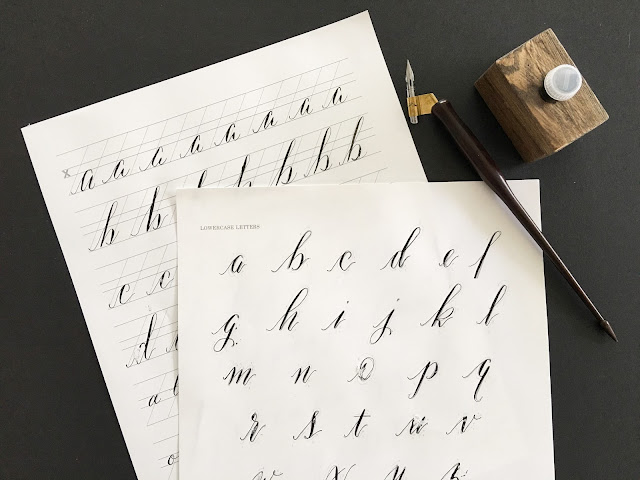 x a a a a a a a a
b b b b b b b b
c c
d
a
LOWERCASE LETTERS
a b c d e f
g h i j k l
m n o p q
r s t u v
w x y z